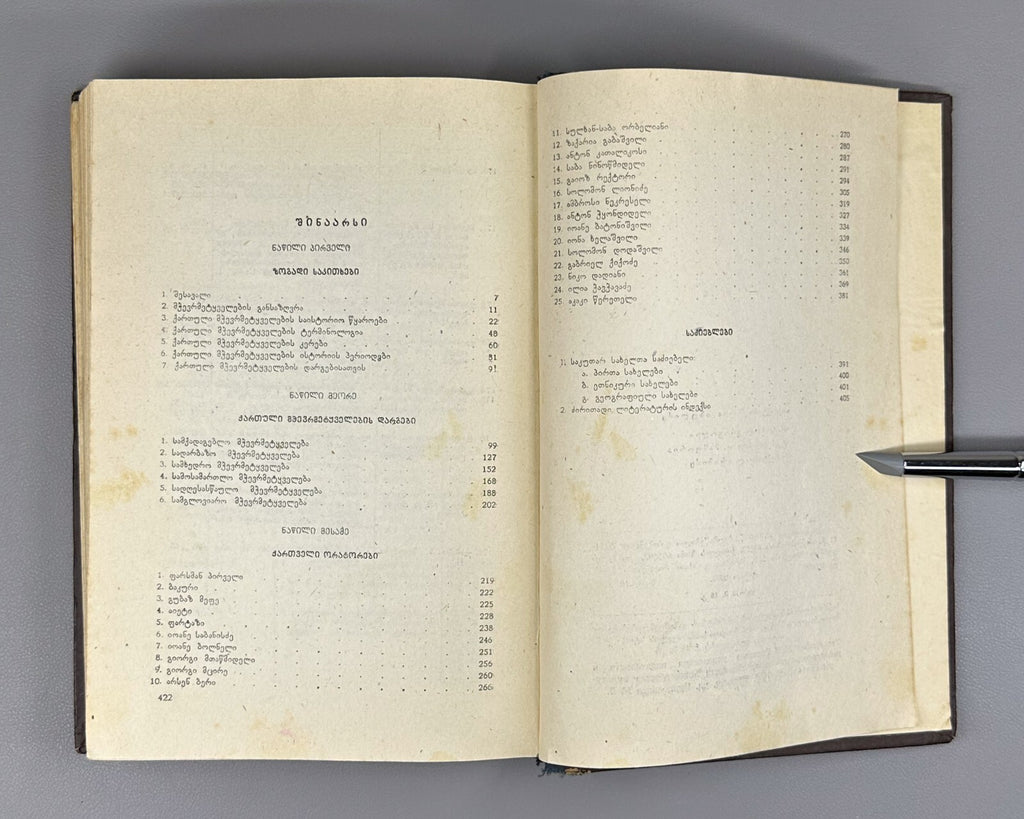 შინაარსი
ნაწილი პირველი
ზოგადი საკითხები
1. შესავალი 7
2. მჭევრმეტყველების განსაზღვრა 11
3. ქართული მჭევრმეტყველების საისტორიო წყაროები 22
4. ქართული მჭევრმეტყველების ტერმინოლოგია 48
5. ქართული მჭევრმეტყველების კერები 60
6. ქართული მჭევრმეტყველების ისტორიის პერიოდები 81
7 ქართული მჭევრმეტყველების დარგებისათვის 91
ნაწილი მეორე
ქართული მჭევრმეტყველების დარგები
1. სამქადაგებლო მჭევრმეტყველება 99
2. სადარბაზო მჭევრმეტყველება 127
3. სამხედრო მჭევრმეტყველება 152
4. სამოსამართლო მჭევრმეტყველება 168
5. სადღესასწაულო მჭევრმეტყველება 188
6. სამგლოვიარო მჭევრმეტყველება 202
ნაწილი მესამე
ქართველი ორატორები
1. ფარსმან პირველი 219
2. ბაკური 222
3. გუბაზ მეფე 225
4. აიეტი 228
5. ფარტაზი 238
6. იოანე საბანისძე 246
7. იოანე ბოლნელი 251
8. გიორგი მთაწმიდელი 256
9. გიორგი მცირე 260
10. არსენ ბერი 266
422
11. სულხან-საბა ორბელიანი 270
12. ზაქარია გაბაშვილი 280
13. ანტონ კათალიკოსი 287
14. საბა ნინოწმიდელი 291
15. გაიოზ რექტორი 294
16. სოლომონ ლიონიძე 305
17. ამბროსი ნეკრესელი 319
18. ანტონ ჭყონდიდელი 327
19. იოანე ბატონიშვილი 334
20. იონა ხელაშვილი 339
21. სოლომონ დოდაშვილი 346
22. გაბრიელ ქიქოძე 350
23. ნიკო დადიანი 361
24. ილია ჭავჭავაძე 369
25. აკაკი წერეთელი 381
საძიებლები
1. საკუთარ სახელთა საძიებელი: 391
ა. პირთა სახელები 400
ბ. ეთნიკური სახელები 401
გ. გეოგრაფიული სახელები 405
2. ძირითადი ლიტერატურის ინდექსი